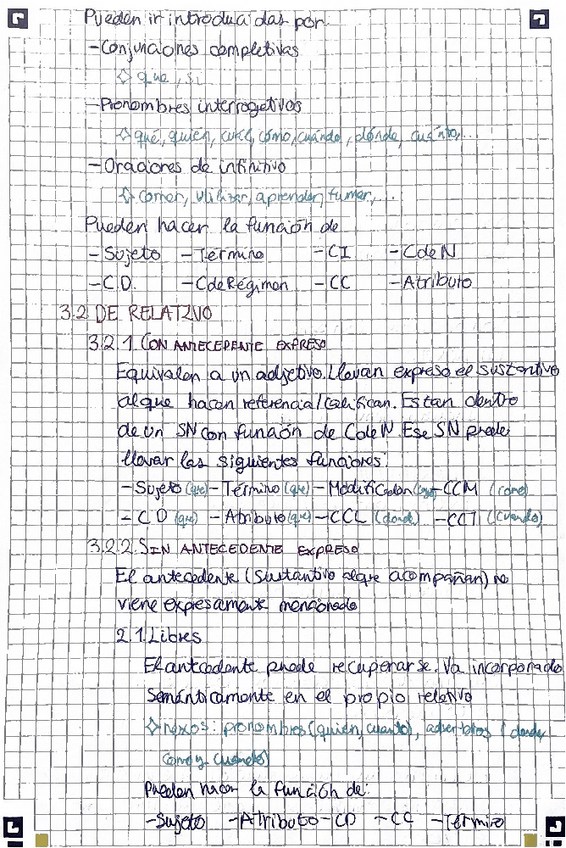 Pueden ir introducidas por
-Conjunciones completivas
que, si
-Pronombres interrogativos
qué, quien, cual, cómo, cuándo, dónde, cuánto,...
-Oraciones de infinitivo
comer, utilizar, aprender, fumar,...
Pueden hacer la función de
-Sujeto -Término -CI -CdeN
-C.D. -CdeRégimen -CC -Atributo
3.2 DE RELATIVO
3.2.1. CON ANTECEDENTE EXPRESO
Equivalen a un adjetivo. Llevan expreso el sustantivo
al que hacen referencia/califican. Estan dentro
de un SN con función de CdeN. Ese SN puede
llevar las siguientes funciones:
-Sujeto (que) -Término (que) -Modificador (cuyo) -CCM (como)
-CD (que) -Atributo (que) -CCL (donde) -CCT (cuando)
3.2.2. SIN ANTECEDENTE EXPRESO
El antecedente (sustantivo al que acompañan) no
viene expresamente mencionado
2.1. Libres
El antecedente puede recuperarse. Va incorporado
semánticamente en el propio relativo
nexos: pronombres (quien, cuanto), adverbios (donde,
como y cuando)
Pueden hacer la función de:
-Sujeto -Atributo -CD -CC -Término